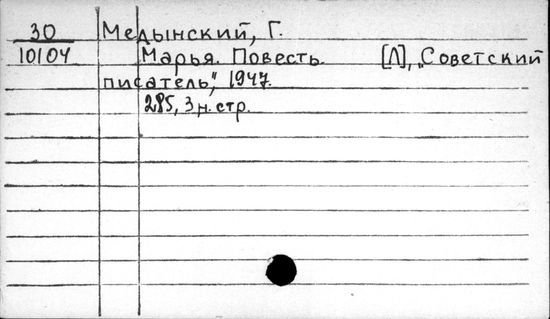 30 Медынский, Г.
10104 Марья. Повесть. [Л], „Советский
писатель", 1947.
285, 3 н. стр.